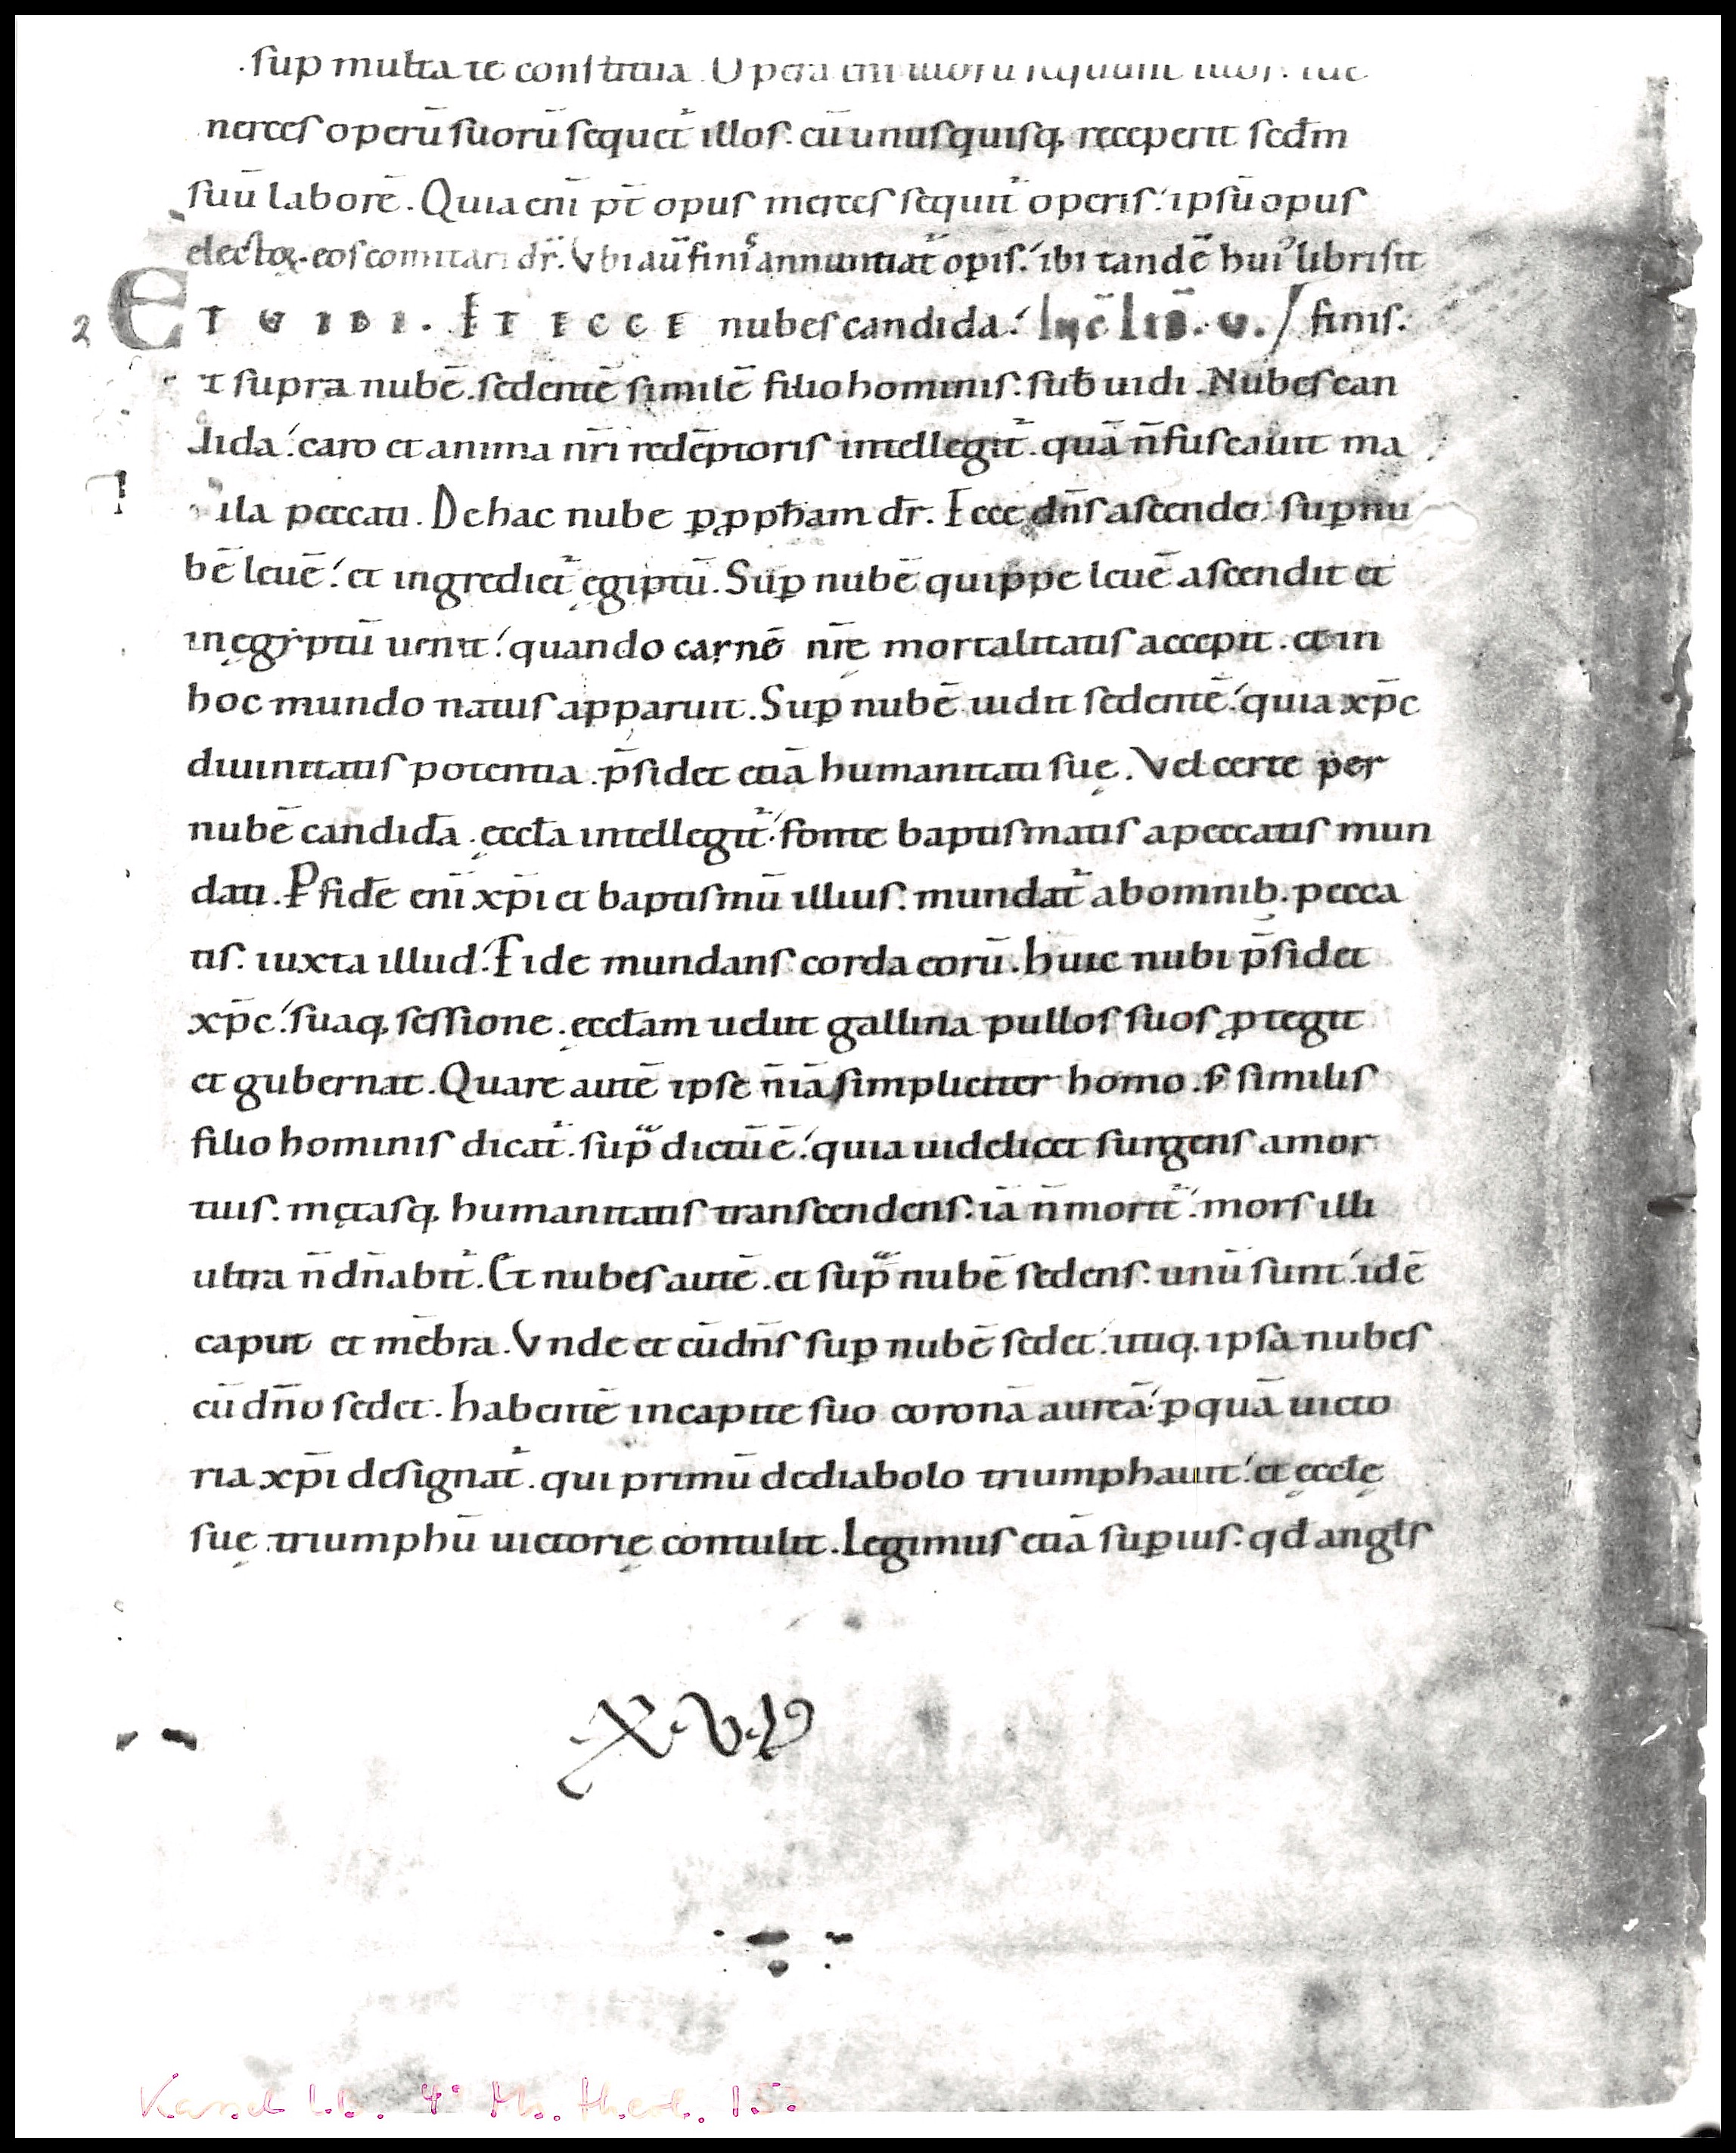 .sup multa te constitua. Opera eni illoru sequunt illos.
merces operū suorū sequet̄ illos. cū unusquisq; receperit secd̄m
suū laborē. Quia eni p̄t opus merces sequit̄ operis: ipsū opus
electoꝝ. eos comitari dr̄. Vbi aū finiꝰ annuntiat̄ opis: ibi tandē huiꝰ libri sit
ET VIDI. ET ECCE nubes candida: Inc̄ lib̄. v. / finis.
et supra nubē. sedentē similē filio hominis: sub̄ uidi. Nubes can
dida: caro et anima nr̄i redēptoris intellegit̄. quā n̄ fuscauit ma
cula peccati. De hac nube ꝑ ꝓph̄am dr̄. Ecce dn̄s ascendet suꝑ nu
bē leuē: et ingrediet̄ ęgiptū. Suꝑ nubē quippe leuē ascendit et
in ęgyptū uenit: quando carnē nr̄ę mortalitatis accepit. et in
hoc mundo natus apparuit. Suꝑ nubē uidit sedentē: quia xp̄c
diuinitatis potentia. p̄sidet etiā humanitati suę. Vel certe per
nubē candidā. ęccl̄a intellegit̄: fonte baptismatis a peccatis mun
dati. P fidē eni xp̄i et baptismū illius. mundat̄ ab omnib. pecca
tis. iuxta illud: Fide mundans corda eorū. huic nubi p̄sidet
xp̄c: suaq; sessione. ęccl̄am uelut gallina pullos suos ꝓtegit
et gubernat. Quare autē ipse n̄ iā simpliciter homo. s; similis
filio hominis dicat̄. supᵃ dictū ē: quia uidelicet surgens a mor
tuis. mętasq; humanitatis transcendens. iā n̄ morit̄: mors illi
ultra n̄ dn̄abit̄. Et nubes autē. et supᵃ nubē sedens. unū sunt: idē
caput et mēbra. Vnde et cū dn̄s suꝑ nubē sedet: utiq; ipsa nubes
cū dn̄o sedet. habentē in capite suo coronā aureā: ꝑ quā uicto
ria xp̄i designat̄. qui primū de diabolo triumphauit: et ęccl̄ę
suę triumphū uictorię contulit. Legimus etiā suꝑius. qd̄ angl̄s
Kassel Lb. 4° Ms. theol. 15